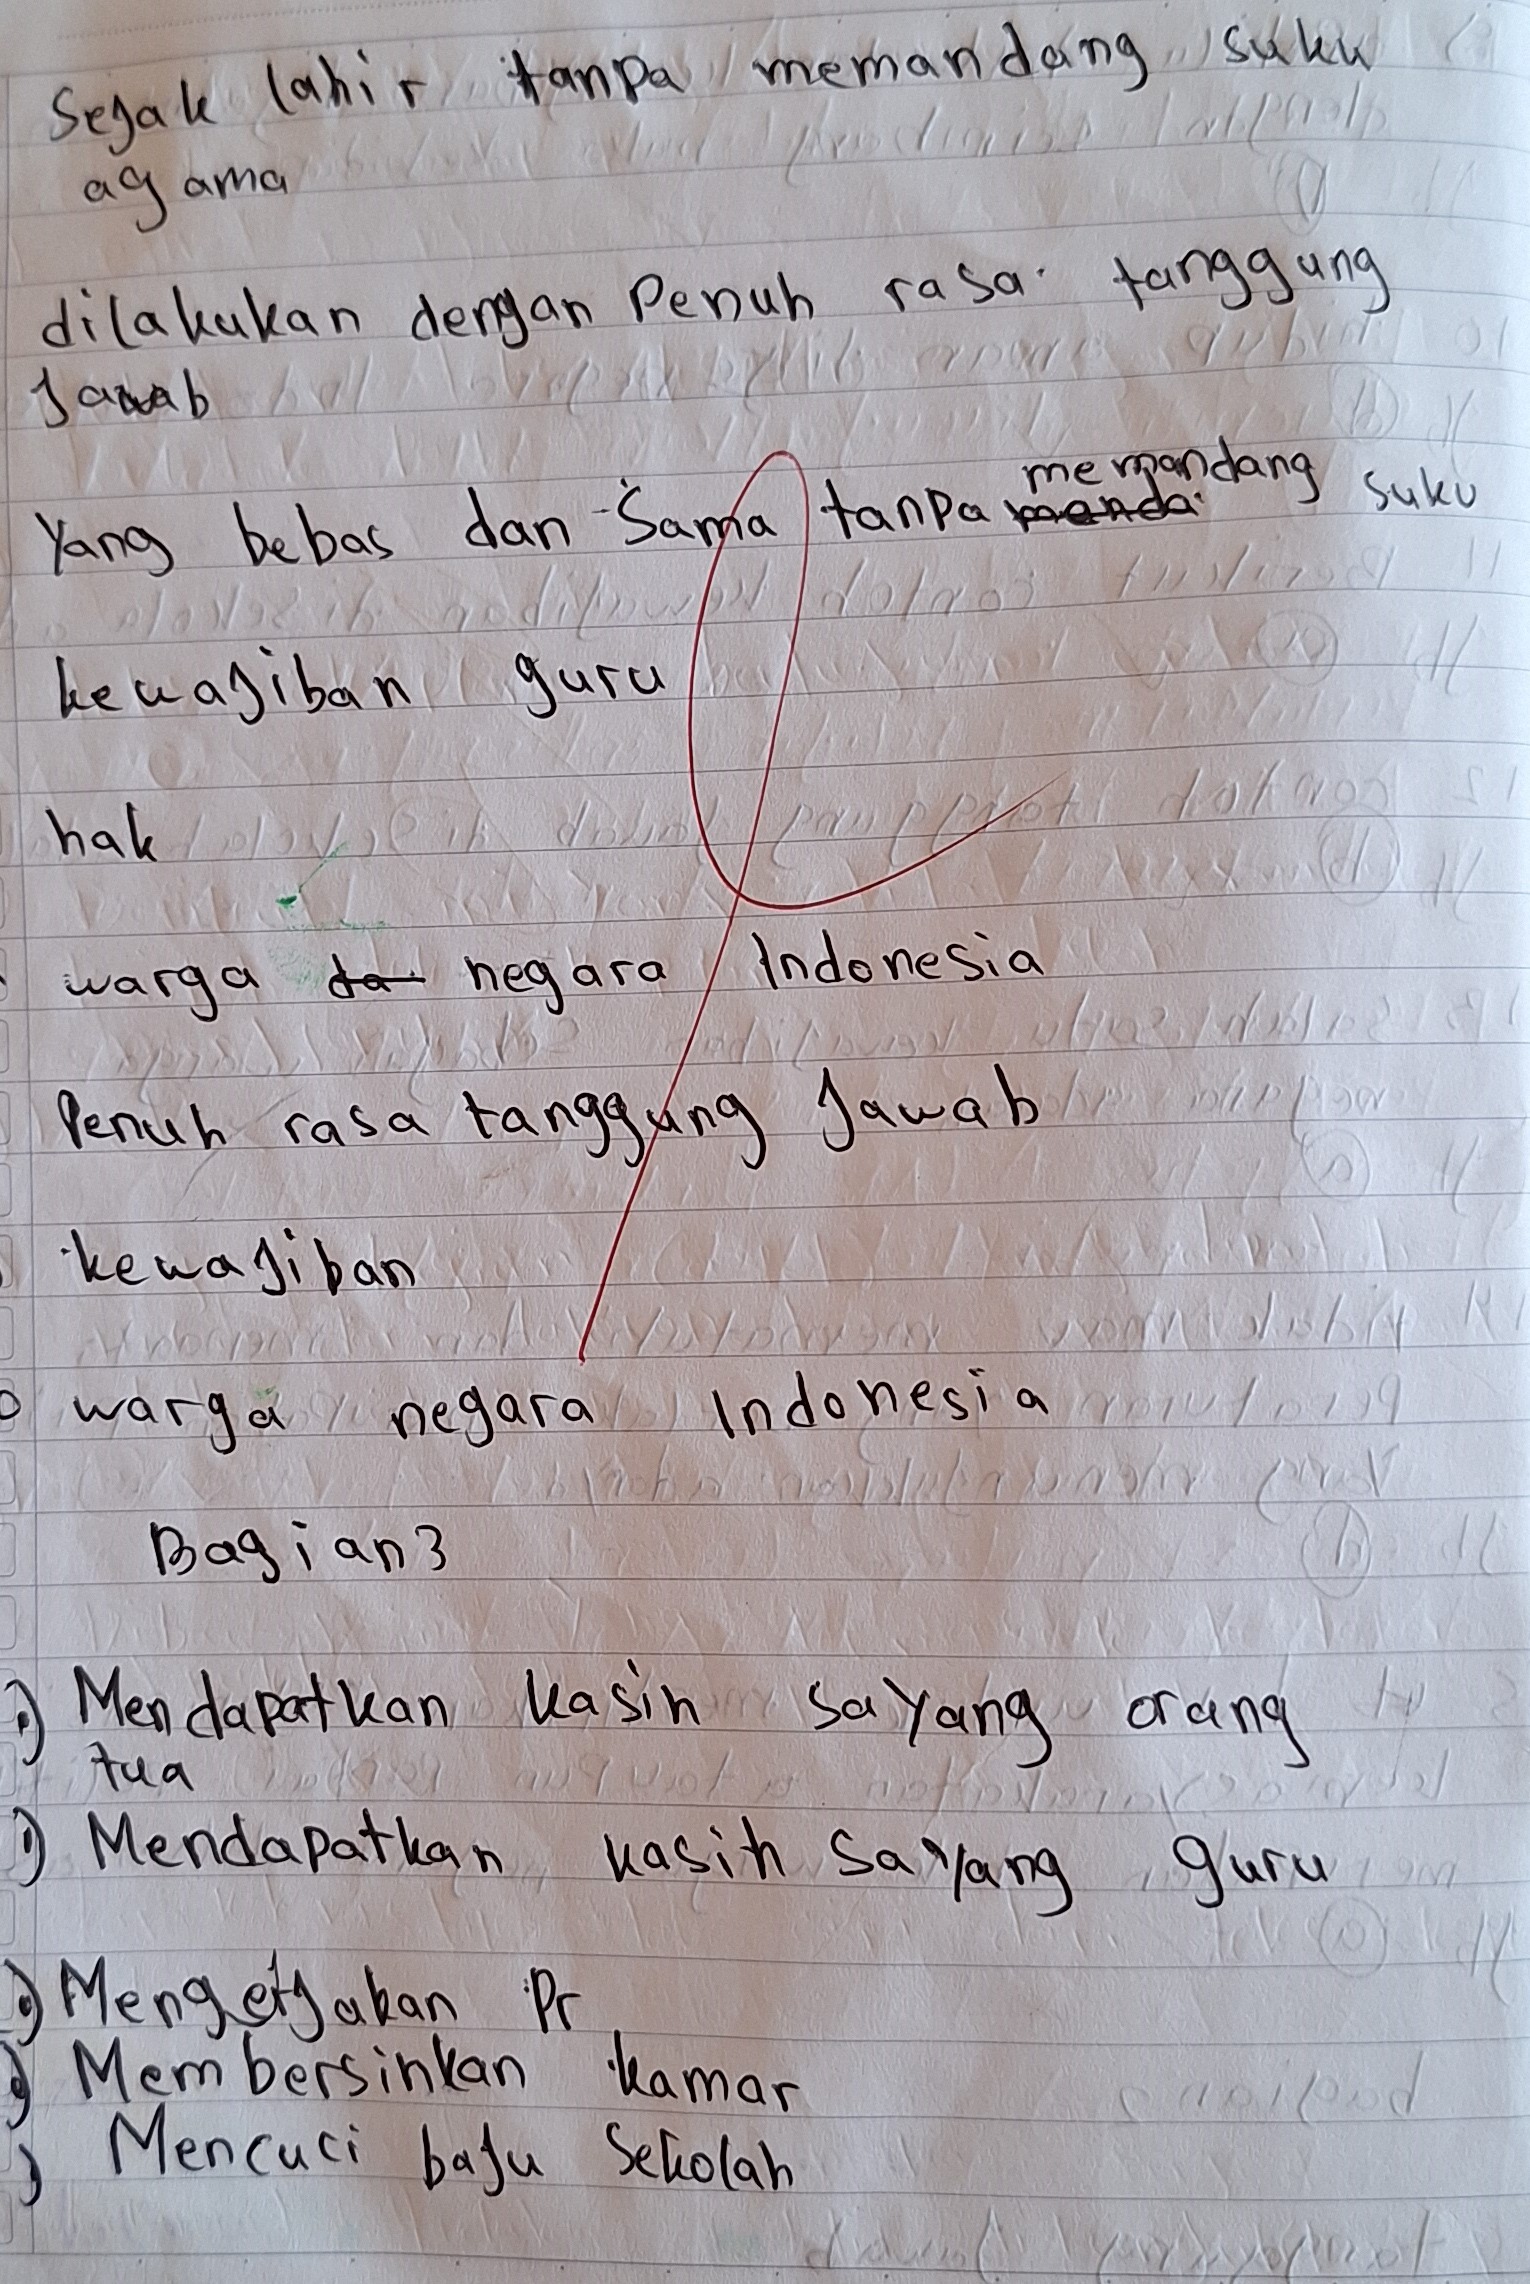 Sejak lahir tanpa memandang suku
agama
dilakukan dengan Penuh rasa tanggung
Jawab
Yang bebas dan Sama tanpa memandang suku
kewajiban guru
hak
warga negara Indonesia
Penuh rasa tanggung Jawab
kewajiban
warga negara Indonesia
Bagian3
) Mendapatkan kasih sayang orang
tua
) Mendapatkan kasih sayang guru
) Mengerjakan Pr
) Membersinkan kamar
) Mencuci baju Sekolah